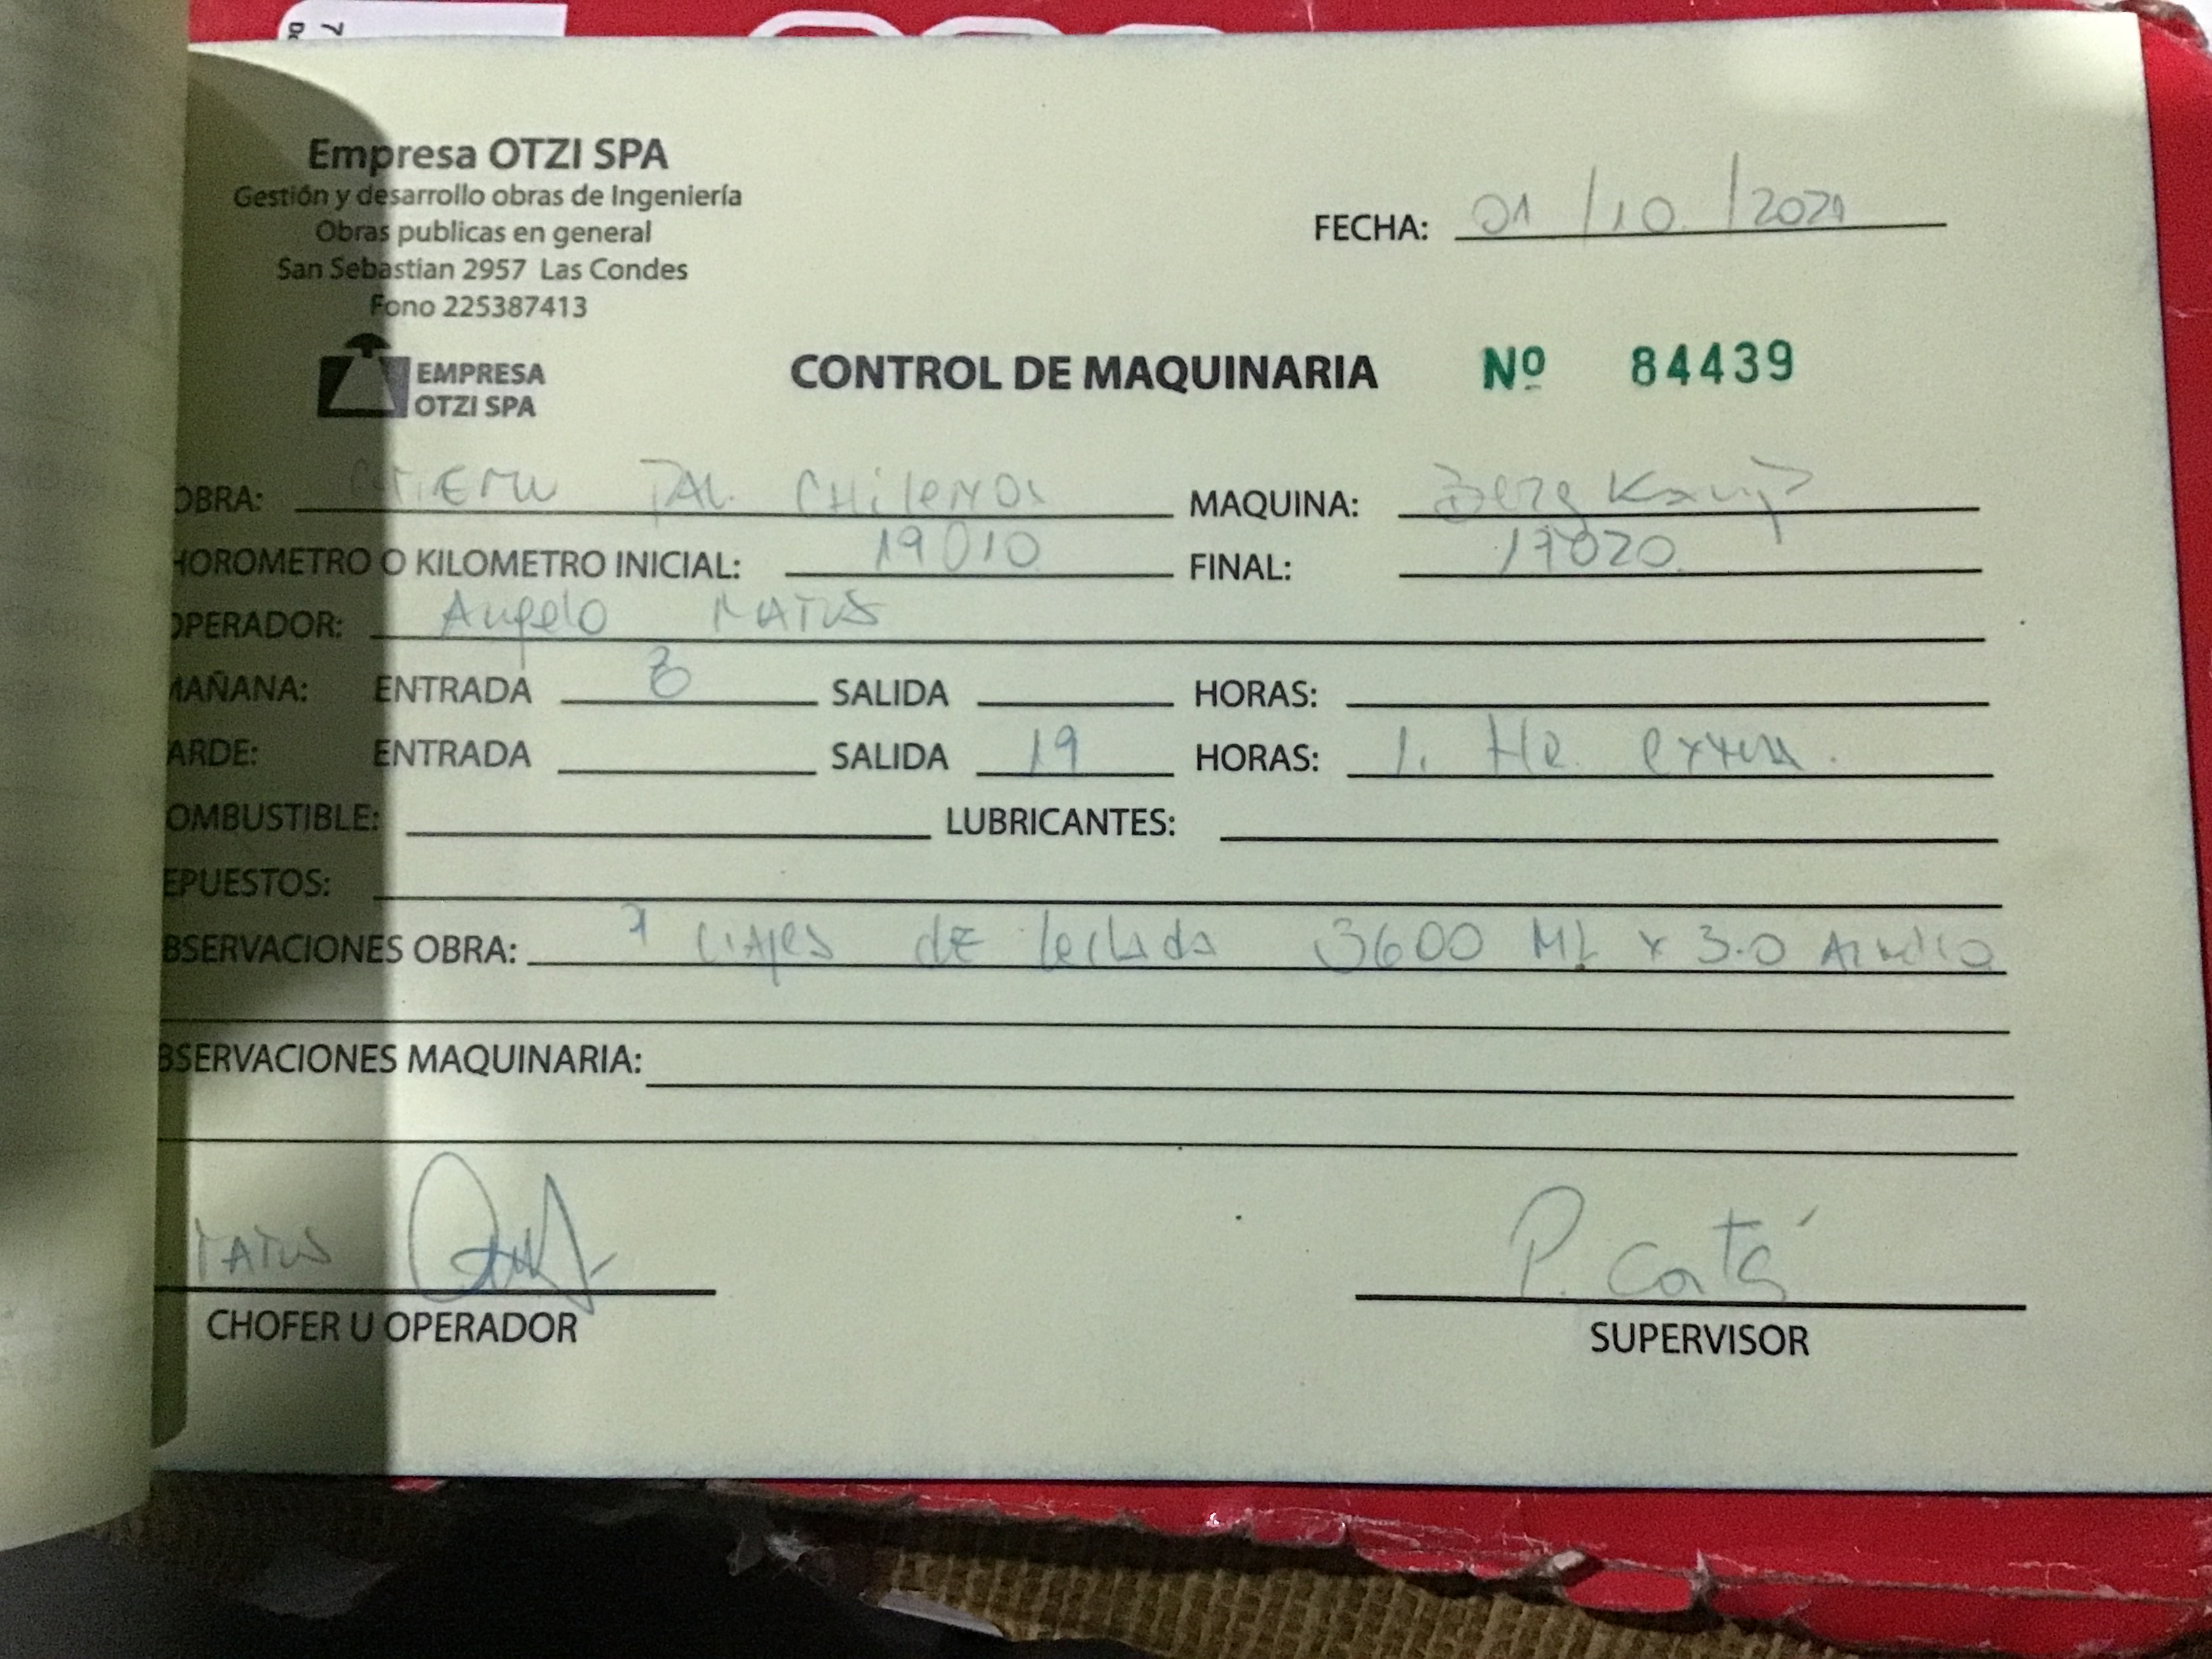 Empresa OTZI SPA
Gestión y desarrollo obras de Ingeniería
Obras publicas en general
San Sebastian 2957 Las Condes
Fono 225387413
FECHA: 01/10/2021
EMPRESA
OTZI SPA
CONTROL DE MAQUINARIA Nº 84439
OBRA: MAQUINA:
HOROMETRO O KILOMETRO INICIAL: 19010 FINAL: 17020
OPERADOR: Angelo Matus
MAÑANA: ENTRADA 8 SALIDA HORAS:
TARDE: ENTRADA SALIDA 19 HORAS: 1. Hr. extra.
OMBUSTIBLE: LUBRICANTES:
EPUESTOS:
BSERVACIONES OBRA: de lechada 3600 ML x 3.0 Ancho
BSERVACIONES MAQUINARIA:
Matus
P. Caté
CHOFER U OPERADOR SUPERVISOR